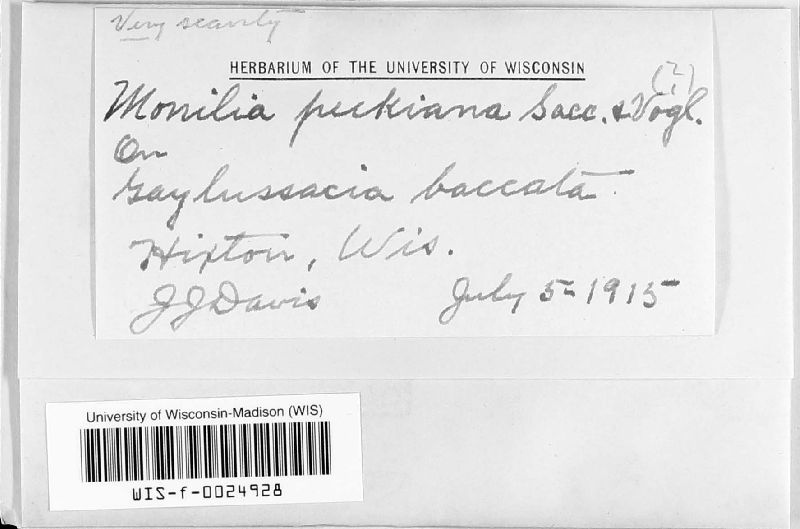 Very scanty
HERBARIUM OF THE UNIVERSITY OF WISCONSIN
(?)
Monilia peckiana Sacc. & Vogl.
On
Gaylussacia baccata
Hixton, Wis.
J J Davis July 5 1915
University of Wisconsin-Madison (WIS)
WIS-f-0024928